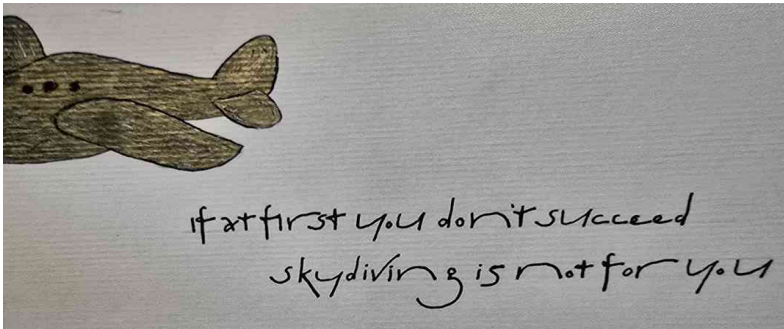 if at first you don't succeed
skydiving is not for you